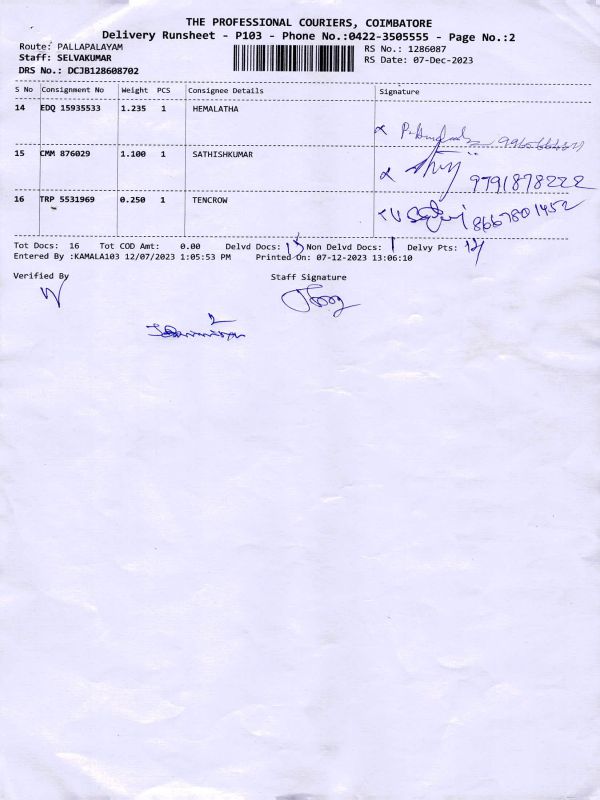 THE PROFESSIONAL COURIERS, COIMBATORE
Delivery Runsheet - P103 - Phone No.:0422-3505555 - Page No.:2
Route: PALLAPALAYAM RS No.: 1286087
Staff: SELVAKUMAR RS Date: 07-Dec-2023
DRS No.: DCJB128608702
S No Consignment No Weight PCS Consignee Details Signature
14 EDQ 15935533 1.235 1 HEMALATHA
15 CMM 876029 1.100 1 SATHISHKUMAR
9791878222
16 TRP 5531969 0.250 1 TENCROW
8667801452
Tot Docs: 16 Tot COD Amt: 0.00 Delvd Docs: 15 Non Delvd Docs: 1 Delvy Pts:
Entered By :KAMALA103 12/07/2023 1:05:53 PM Printed On: 07-12-2023 13:06:10
Verified By Staff Signature